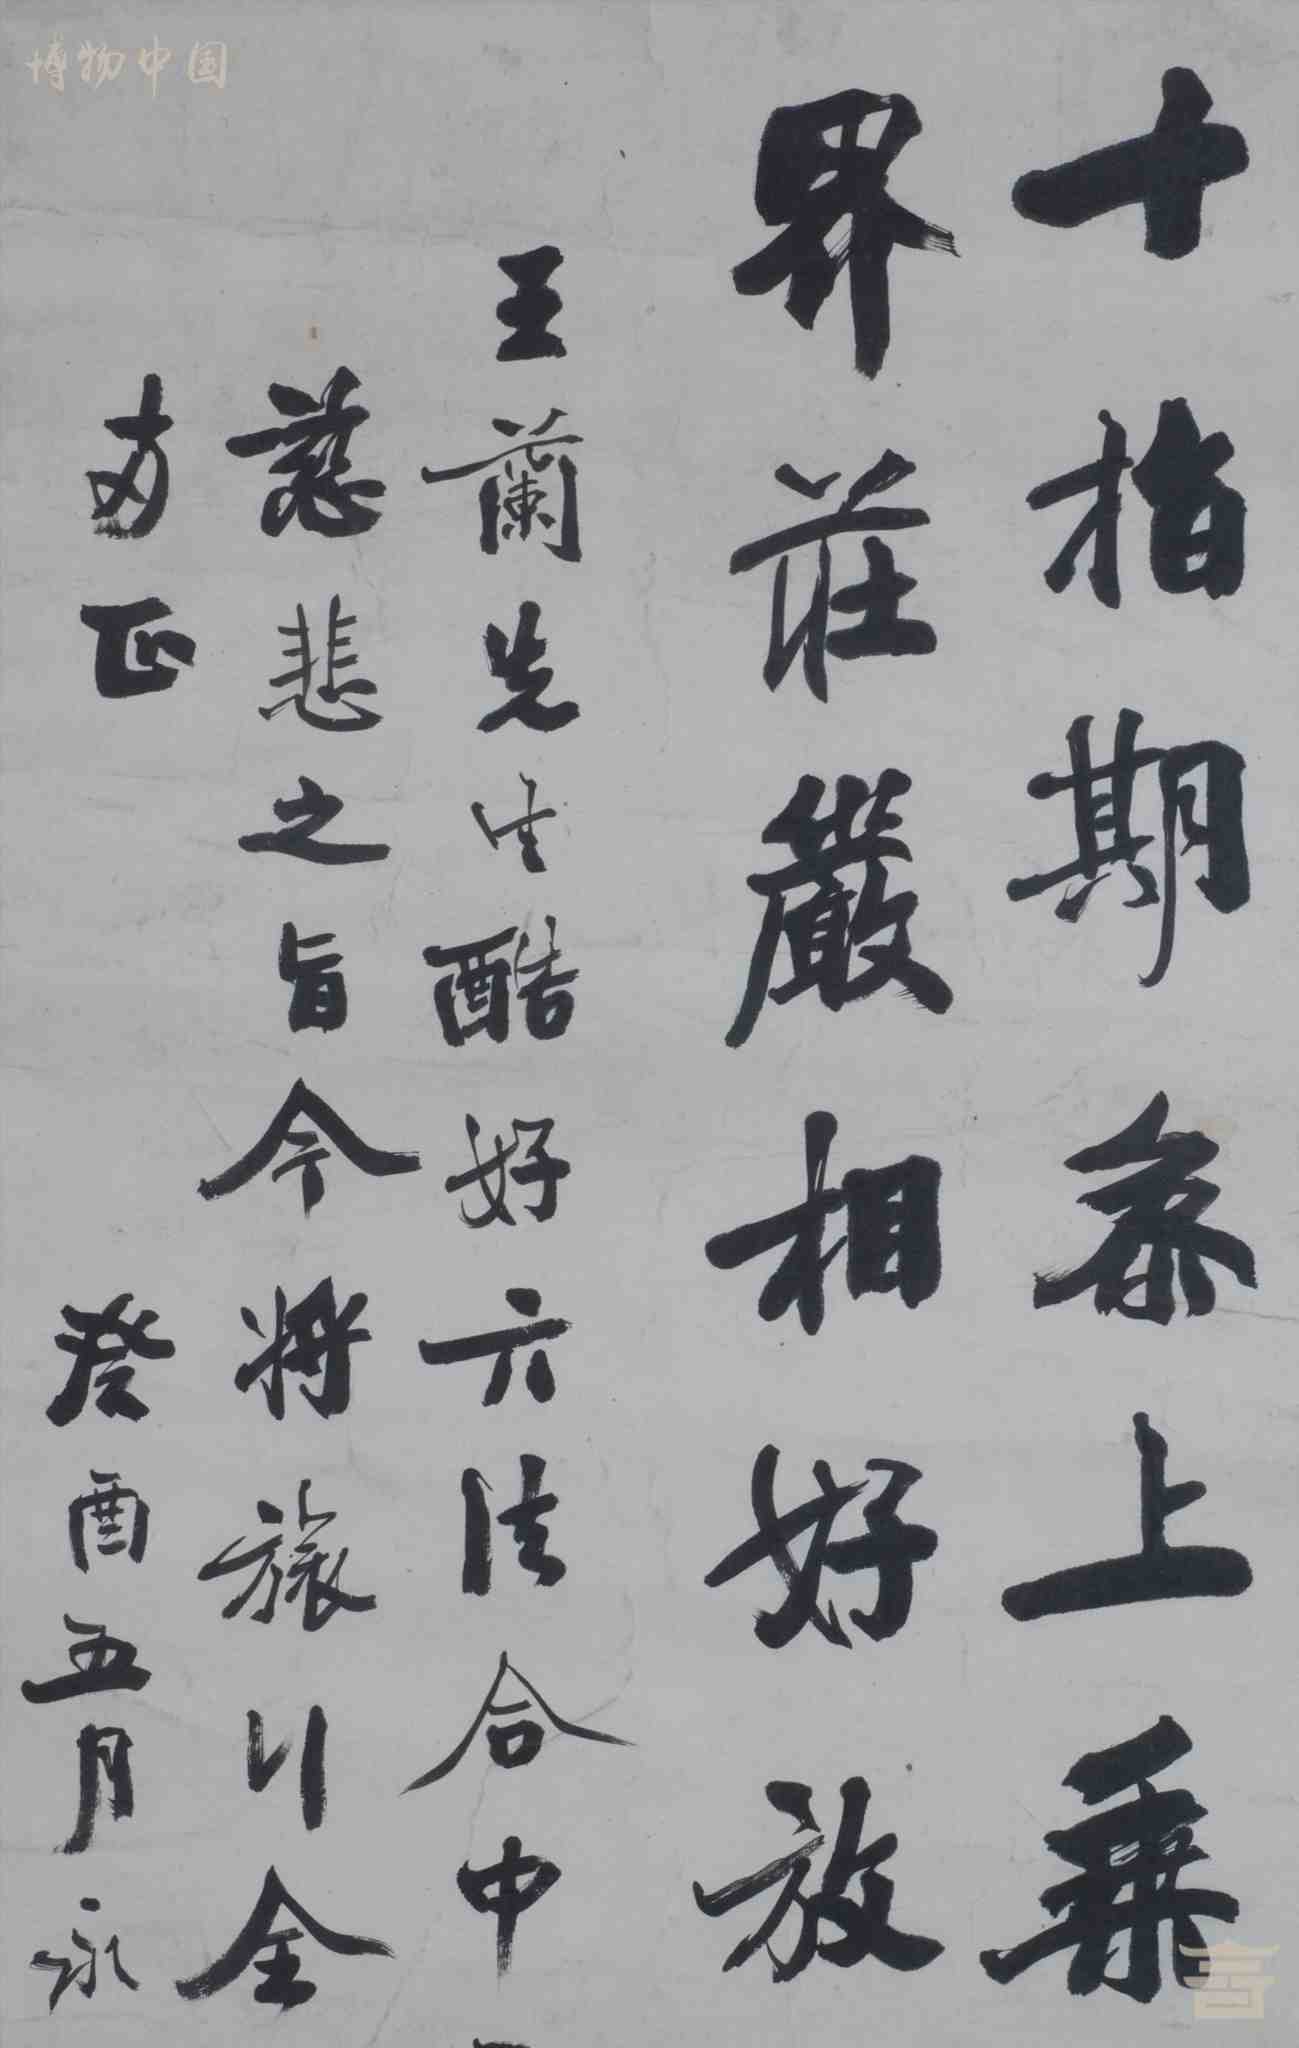 十指期叅上乗
界莊嚴相好放
王蘭先生酷好六法合中
慈悲之旨今將旅行全
教正
癸酉五月永
博物中国